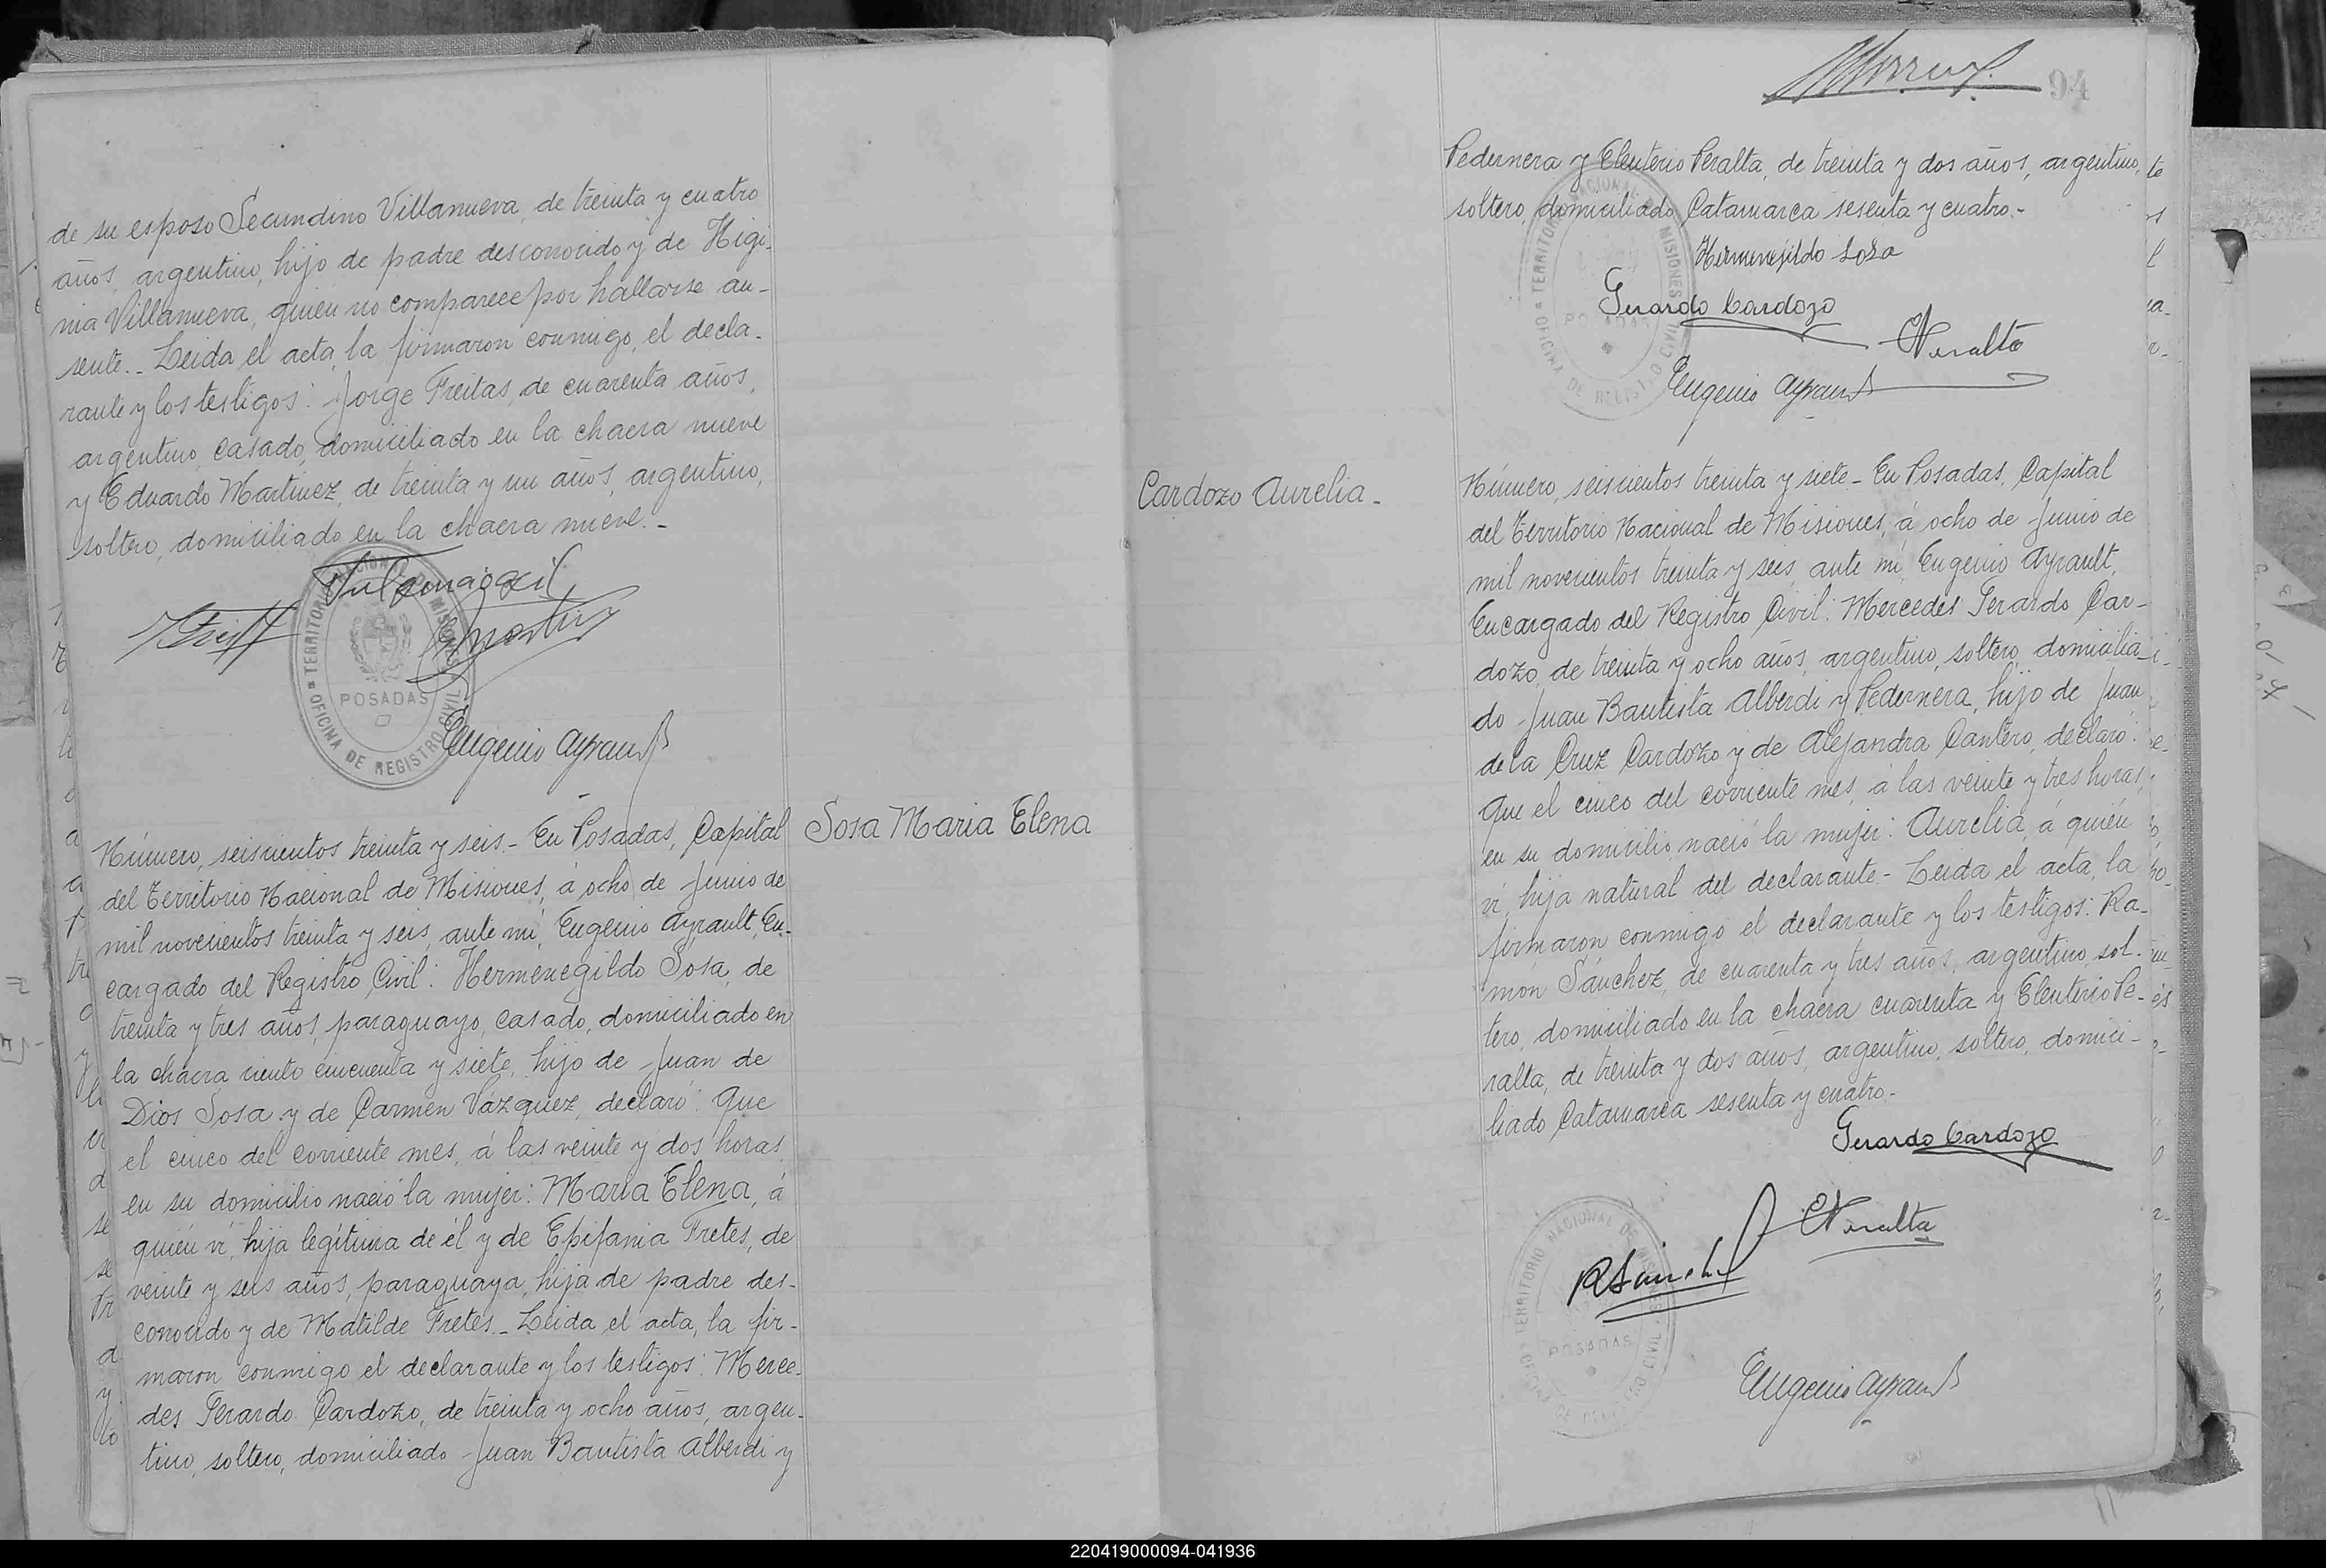 de su esposo Secundino Villanueva, de treinta y cuatro
años, argentino, hijo de padre desconocido y de Higi-
nia Villanueva, quien no comparece por hallarse au-
sente.- Leida el acta, la firmaron conmigo, el decla-
rante y los testigos: Jorge Freitas, de cuarenta años,
argentino, casado, domiciliado en la chacra nueve
y Eduardo Martinez, de treinta y un años, argentino,
soltero, domiciliado en la chacra nueve.-
TERRITORIO NACIONAL DE MISIONES
POSADAS
OFICINA DE REGISTRO CIVIL
Eugenio Ayrault
Sosa Maria Elena
Número, seiscientos treinta y seis.- En Posadas, Capital
del Territorio Nacional de Misiones, á ocho de Junio de
mil novecientos treinta y seis, ante mi, Eugenio Ayrault, En-
cargado del Registro Civil: Hermenegildo Sosa, de
treinta y tres años, paraguayo, casado, domiciliado en
la chacra ciento cincuenta y siete, hijo de Juan de
Dios Sosa y de Carmen Vázquez, declaró: Que
el cinco del corriente mes, á las veinte y dos horas,
en su domicilio nació la mujer: Maria Elena, á
quién ví, hija legítima de él y de Epifania Fretes, de
veinte y seis años, paraguaya, hija de padre des-
conocido y de Matilde Fretes.- Leida el acta, la fir-
maron conmigo el declarante y los testigos: Merce-
des Gerardo Cardozo, de treinta y ocho años, argen-
tino, soltero, domiciliado Juan Bautista Alberdi y
94
Pedernera y Eleuterio Peralta, de treinta y dos años, argentino,
soltero, domiciliado Catamarca sesenta y cuatro.-
Hermenejildo Sosa
Gerardo Cardozo
Peralta
Eugenio Ayrault
TERRITORIO NACIONAL DE MISIONES
POSADAS
OFICINA DE REGISTRO CIVIL
Cardozo Aurelia.-
Número, seiscientos treinta y siete.- En Posadas, Capital
del Territorio Nacional de Misiones, á ocho de Junio de
mil novecientos treinta y seis, ante mi, Eugenio Ayrault,
Encargado del Registro Civil: Mercedes Gerardo Car-
dozo, de treinta y ocho años, argentino, soltero, domicilia-
do Juan Bautista Alberdi y Pedernera, hijo de Juan
de la Cruz Cardozo y de Alejandra Cantero, declaró:
Que el cinco del corriente mes, á las veinte y tres horas,
en su domicilio nació la mujer: Aurelia, á quién
ví, hija natural del declarante.- Leida el acta, la
firmaron conmigo el declarante y los testigos: Ra-
món Sánchez, de cuarenta y tres años, argentino, sol-
tero, domiciliado en la chacra cuarenta y Eleuterio Pe-
ralta, de treinta y dos años, argentino, soltero, domici-
liado Catamarca sesenta y cuatro.-
Gerardo Cardozo
Peralta
TERRITORIO NACIONAL DE MISIONES
POSADAS
OFICINA DE REGISTRO CIVIL
Eugenio Ayrault
220419000094-041936